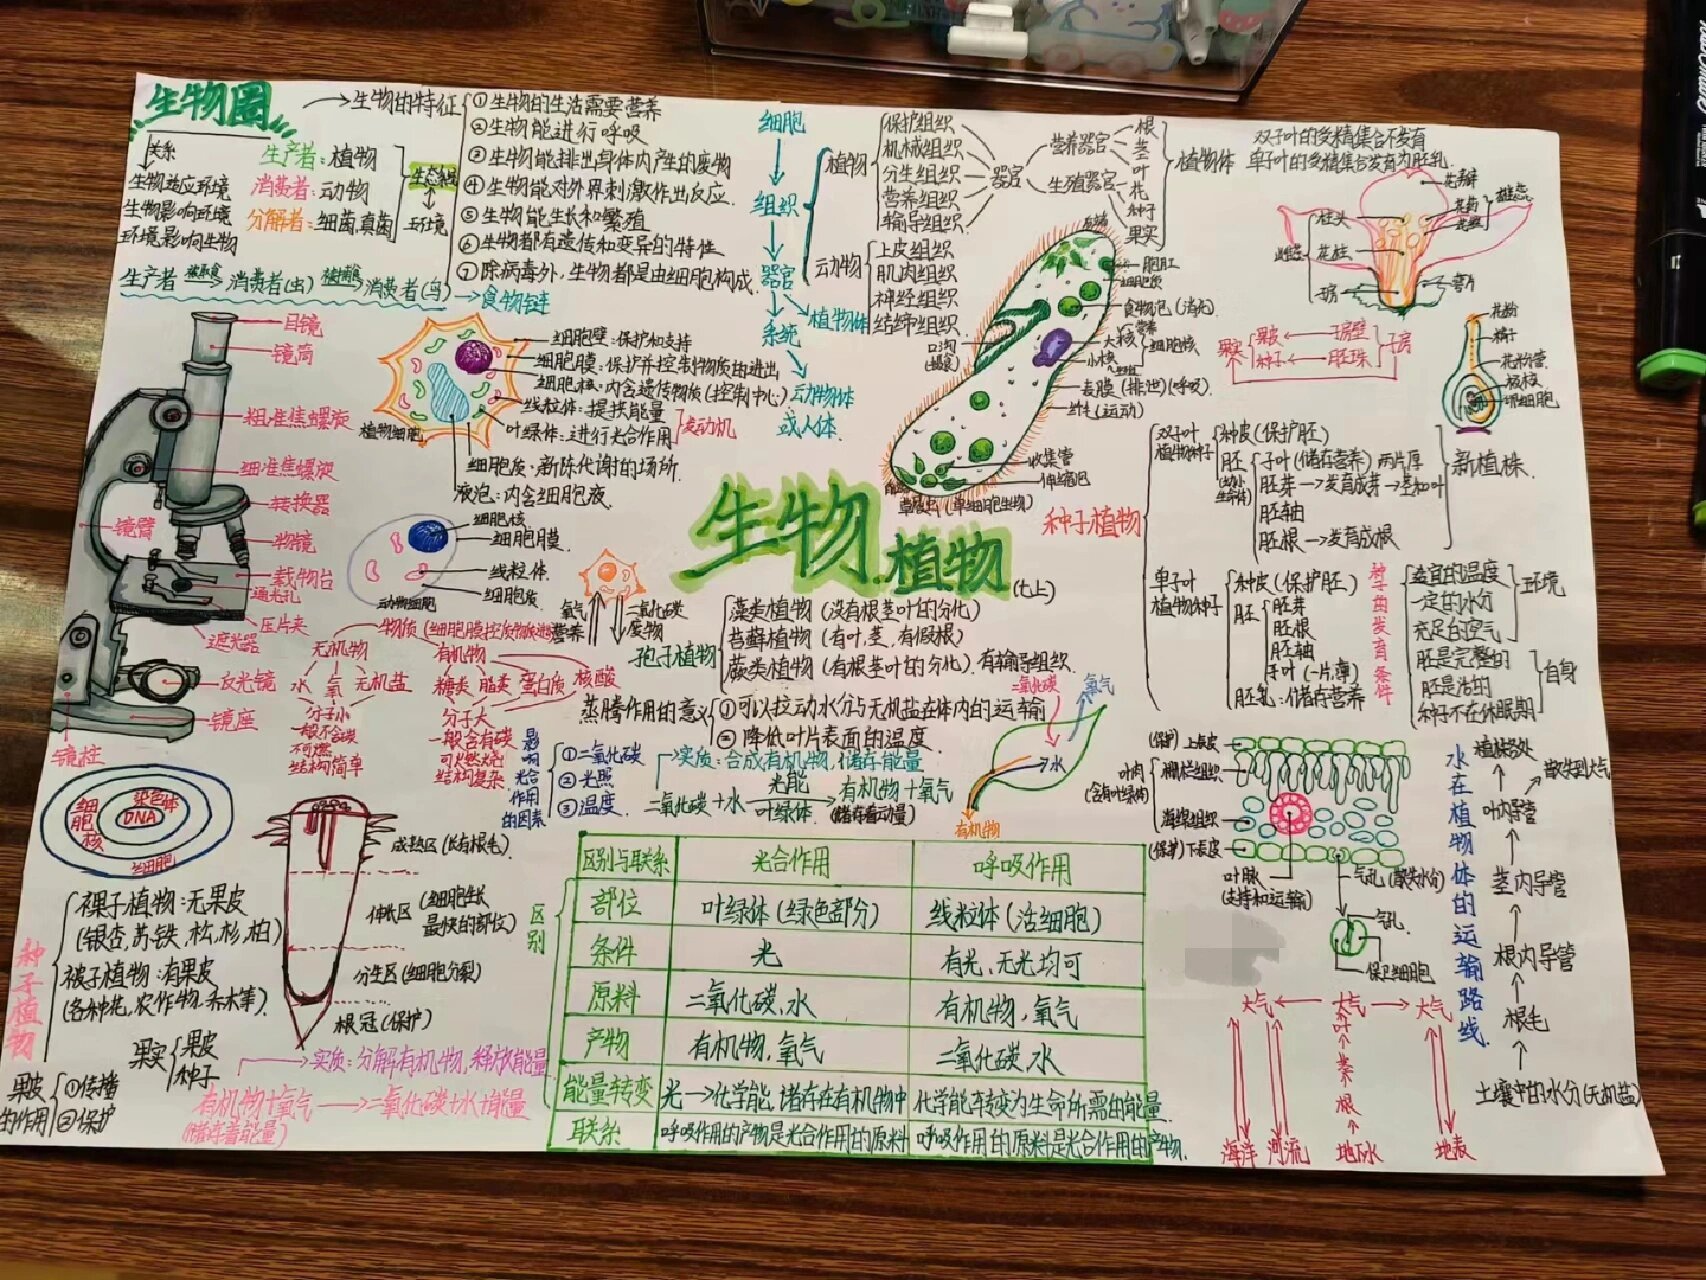 生物圈
关系
生物适应环境
生物影响环境
环境影响生物
生产者：植物
消费者：动物
分解者：细菌,真菌
生态系统
环境
生产者 消费者(虫) 消费者(鸟) 食物链
生物的特征
①生物的生活需要营养
②生物能进行呼吸
生物能排出身体内产生的废物
④生物能对外界刺激作出反应.
⑤生物能生长和繁殖
⑥生物都有遗传和变异的特性
⑦除病毒外,生物都是由细胞构成.
细胞
组织
器官
系统
植物体
动物体
或人体.
植物
保护组织
机械组织
分生组织
营养组织
输导组织
器官
营养器官
生殖器官
根
茎
叶
花
种子
果实
植物体
动物
上皮组织
肌肉组织
神经组织
结缔组织
双子叶的受精集合不发育
单子叶的受精集合发育为胚乳.
花瓣
柱头
花柱
子房
果实
果皮 子房壁
种子 胚珠
子房
花粉
花粉管
卵细胞
目镜
镜筒
粗准焦螺旋
细准焦螺旋
转换器
镜臂
物镜
载物台
通光孔
压片夹
遮光器
反光镜
镜座
镜柱
细胞壁：保护和支持
细胞膜：保护并控制物质的进出
细胞核：内含遗传物质(控制中心)
线粒体：提供能量
叶绿体：进行光合作用
发动机
植物细胞
细胞质：新陈代谢的场所.
液泡：内含细胞液.
细胞核
细胞膜.
线粒体.
细胞质.
动物细胞
氧气
营养
二氧化碳
废物
食物泡(消化)
口沟
大核
小核
细胞核
表膜(排泄)(呼吸)
纤毛(运动)
收集管
伸缩泡
草履虫(单细胞生物)
生物.植物
(七上)
种子植物
双子叶
植物种子
种皮(保护胚)
胚
子叶(储存营养)两片厚
胚芽→发育成芽→茎和叶
胚轴
胚根→发育成根
新植株.
单子叶
植物种子
种皮(保护胚)
胚
胚芽
胚根
胚轴
子叶(一片,薄)
胚乳：储存营养
种子的发育条件
适宜的温度
一定的水分
充足的空气
环境
胚是完整的
胚是活的
种子不在休眠期
自身
物质
无机物
水 氧 无机盐
分子小
一般不含碳
不可燃
结构简单
有机物
糖类 脂类 蛋白质 核酸
分子大
一般含有碳
可以燃烧
结构复杂
孢子植物
藻类植物(没有根茎叶的分化)
苔藓植物(有叶,茎,有假根)
蕨类植物(有根茎叶的分化).有输导组织.
蒸腾作用的意义
①可以拉动水分与无机盐在体内的运输
②降低叶片表面的温度.
影响光合作用的因素
①二氧化碳
②光照
③温度.
实质：合成有机物,储存能量
二氧化碳+水 光能 叶绿体 有机物+氧气
(储存着动量)
二氧化碳
氧气
水
有机物
细胞核
染色体
DNA
成熟区(长有根毛).
伸长区(细胞生长
最快的部位)
分生区(细胞分裂)
根冠(保护)
种子植物
裸子植物：无果皮
(银杏,苏铁,松,杉,柏)
被子植物：有果皮
(各种花,农作物.乔木等).
果实
果皮
种子
果皮
的作用
①传播
②保护
实质：分解有机物,释放能量
有机物+氧气→二氧化碳+水+能量
(储存着能量)
区别
区别与联系 光合作用 呼吸作用
部位 叶绿体(绿色部分) 线粒体(活细胞)
条件 光 有光、无光均可
原料 二氧化碳,水 有机物,氧气
产物 有机物,氧气 二氧化碳,水
能量转变 光→化学能,储存在有机物中 化学能转变为生命所需的能量.
联系 呼吸作用的产物是光合作用的原料 呼吸作用的原料是光合作用的产物.
(保护)上表皮
叶肉
(含有叶绿体)
栅栏组织
海绵组织
(保护)下表皮
叶脉
(支持和运输)
气孔(散失水分)
气孔
保卫细胞
水在植物体的运输路线.
植株各处
散失到大气
叶内导管
茎内导管
根内导管
根毛
土壤中的水分(无机盐)
大气 大气 大气
叶
茎
根
海洋 河流 地下水 地表